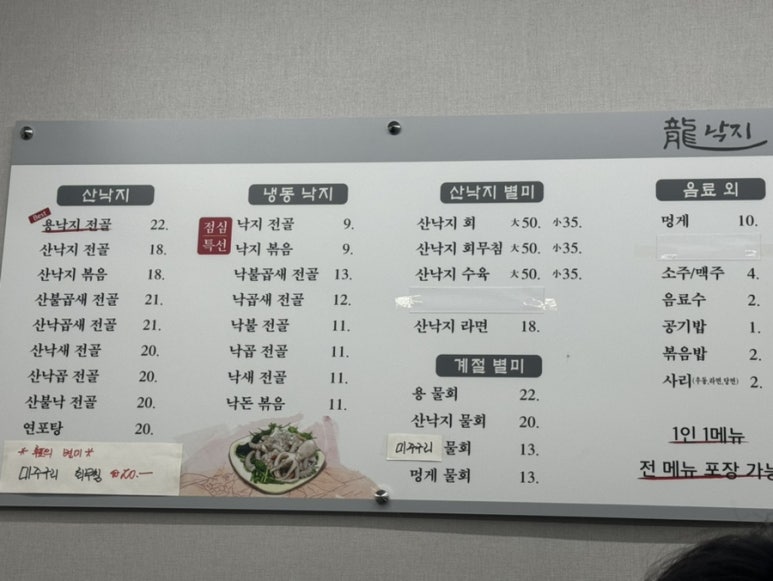 龍 낙지
산낙지
Best 용낙지 전골 22.
산낙지 전골 18.
산낙지 볶음 18.
산불곱새 전골 21.
산낙곱새 전골 21.
산낙새 전골 20.
산낙곱 전골 20.
산불낙 전골 20.
연포탕 20.
미주구리 회무침 20.—
냉동 낙지
점심
특선
낙지 전골 9.
낙지 볶음 9.
낙불곱새 전골 13.
낙곱새 전골 12.
낙불 전골 11.
낙곱 전골 11.
낙새 전골 11.
낙돈 볶음 11.
산낙지 별미
산낙지 회 大50. 小35.
산낙지 회무침 大50. 小35.
산낙지 수육 大50. 小35.
산낙지 라면 18.
계절 별미
용 물회 22.
산낙지 물회 20.
미주구리 물회 13.
멍게 물회 13.
음료 외
멍게 10.
소주/맥주 4.
음료수 2.
공기밥 1.
볶음밥 2.
사리(우동,라면,당면) 2.
1인 1메뉴
전 메뉴 포장 가능